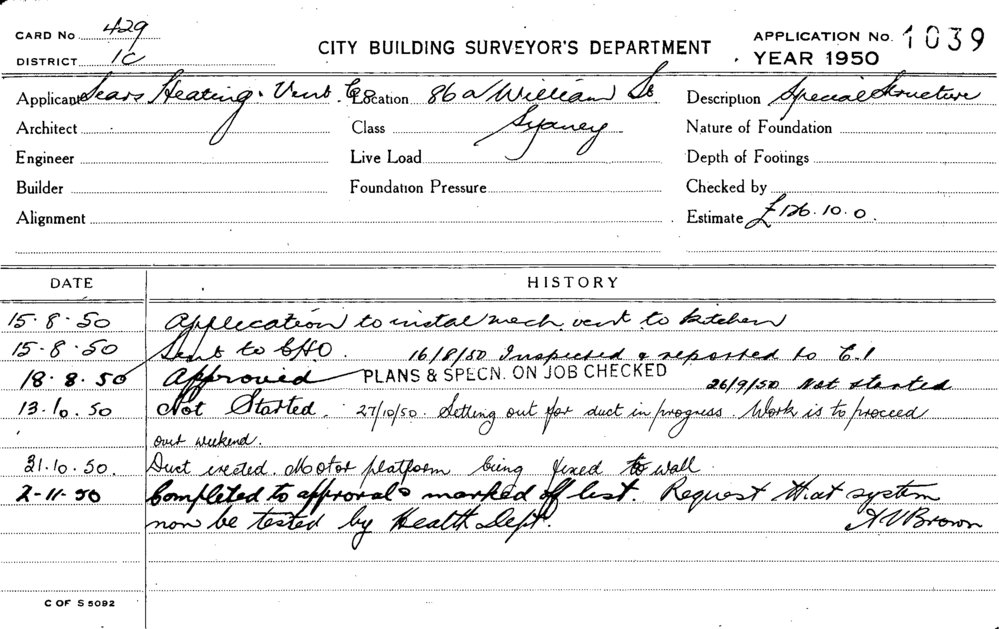 CARD No 429
DISTRICT 1C
CITY BUILDING SURVEYOR'S DEPARTMENT
APPLICATION No. 1039
YEAR 1950
Applicant Sears Heating & Vent. Co Location 86a William St Description Special Structure
Architect Class Sydney Nature of Foundation
Engineer Live Load Depth of Footings
Builder Foundation Pressure Checked by
Alignment Estimate £126.10.0.
DATE HISTORY
15.8.50 Application to instal mech. vent to kitchen
15.8.50 Sent to CHO. 16/8/50 Inspected & reported to C.I
18.8.50 Approved PLANS & SPECN. ON JOB CHECKED 26/9/50 Not started
13.10.50 Not Started. 27/10/50. Setting out for duct in progress. Work is to proceed
over weekend.
31.10.50. Duct erected. Motor platform being fixed to wall
2-11-50 Completed to approval & marked off list. Request that system
now be tested by Health Dept. A V Brown
C OF S 5092